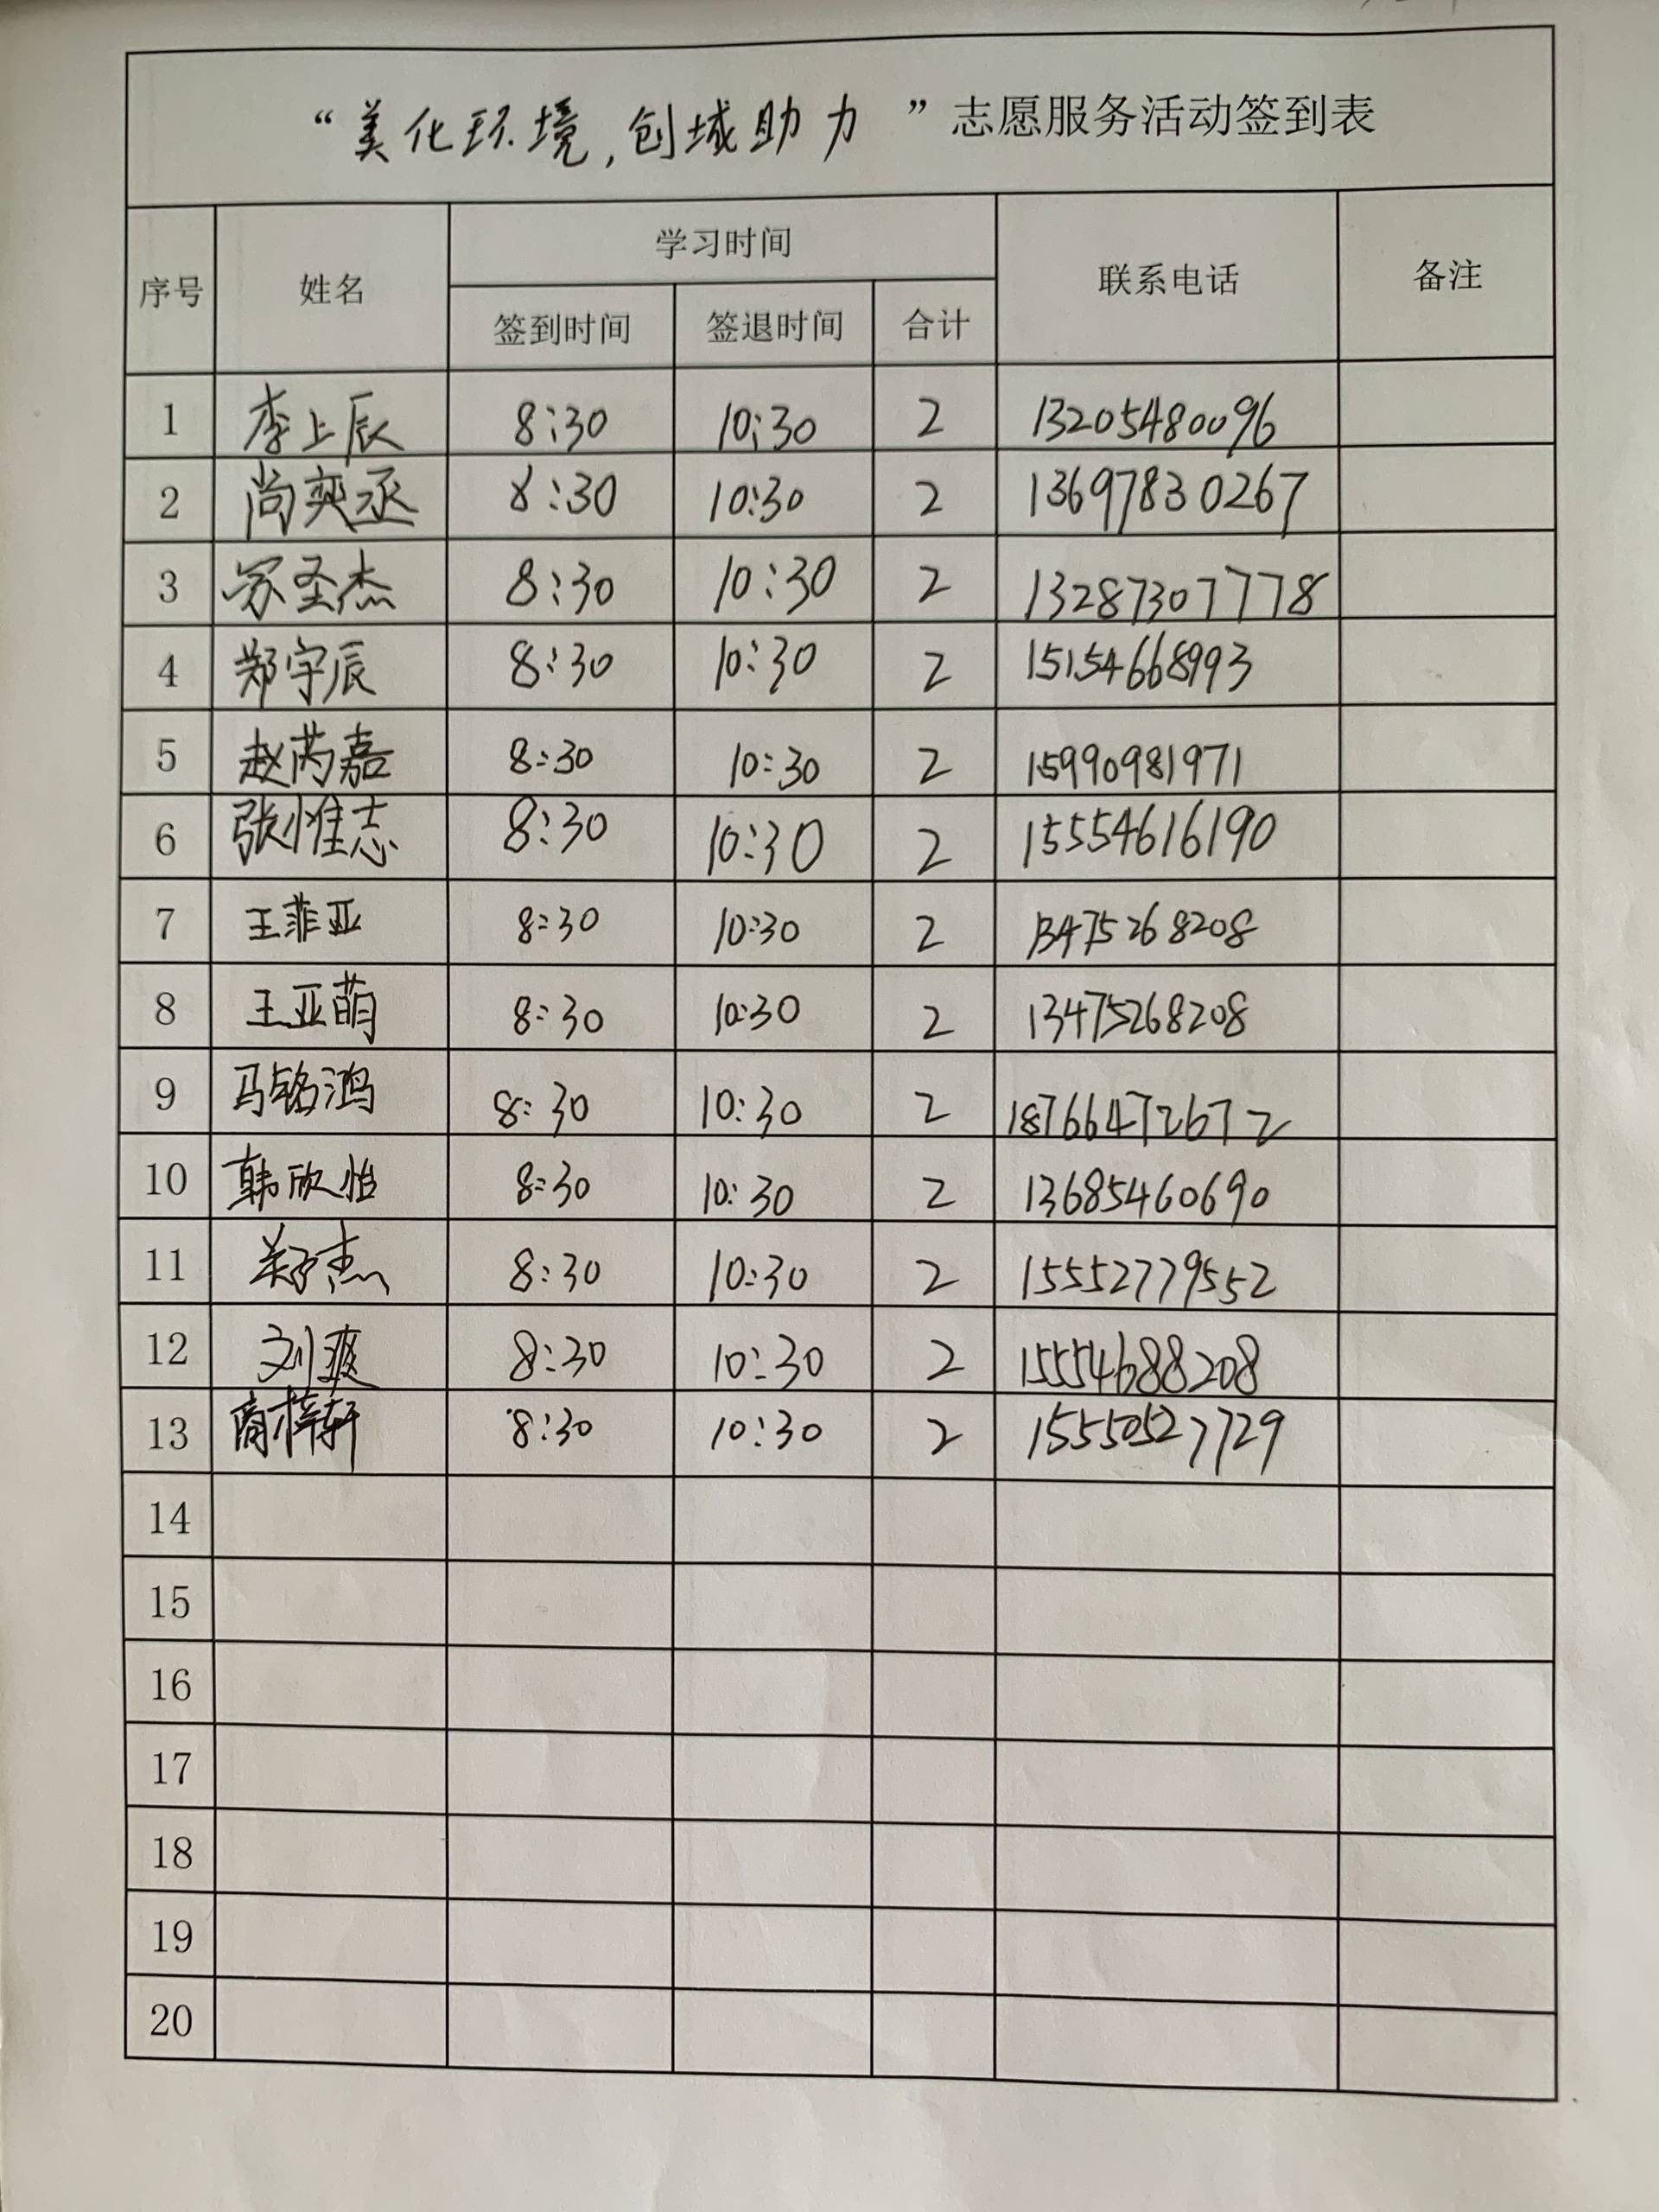 “美化环境,创城助力”志愿服务活动签到表
序号 姓名 学习时间 联系电话 备注
签到时间 签退时间 合计
1 李上辰 8:30 10:30 2 13205480096
2 尚奕丞 8:30 10:30 2 13697830267
3 苏圣杰 8:30 10:30 2 13287307778
4 郑宇辰 8:30 10:30 2 15154668993
5 赵芮嘉 8:30 10:30 2 15990981971
6 张惟志 8:30 10:30 2 15554616190
7 王菲亚 8:30 10:30 2 13475268208
8 王亚萌 8:30 10:30 2 13475268208
9 马铭鸿 8:30 10:30 2 18766472672
10 韩欣怡 8:30 10:30 2 13685460690
11 郑杰 8:30 10:30 2 15552779552
12 刘爽 8:30 10:30 2 15554688208
13 商梓轩 8:30 10:30 2 15550527729
14
15
16
17
18
19
20